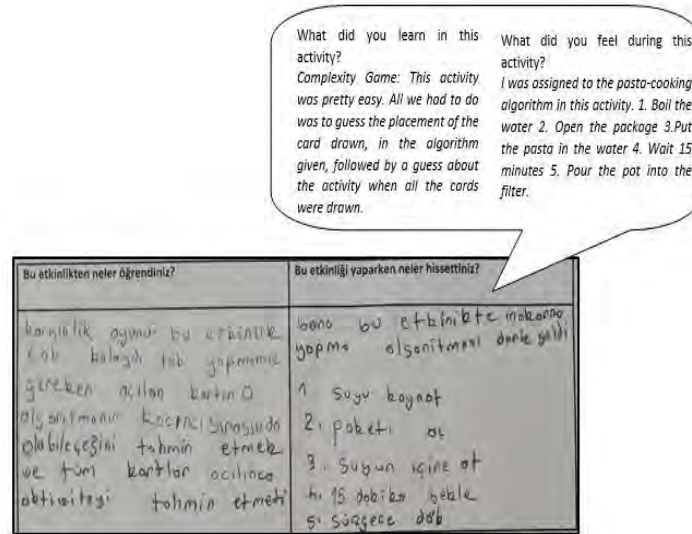 What did you learn in this
activity?
Complexity Game: This activity
was pretty easy. All we had to do
was to guess the placement of the
card drawn, in the algorithm
given, followed by a guess about
the activity when all the cards
were drawn.
What did you feel during this
activity?
I was assigned to the pasta-cooking
algorithm in this activity. 1. Boil the
water 2. Open the package 3.Put
the pasta in the water 4. Wait 15
minutes 5. Pour the pot into the
filter.
Bu etkinlikten neler öğrendiniz?
karışıklık oyunu bu etkinlik
çok kolaydı tek yapmamız
gereken açılan kartın o
algoritmanın kaçıncı sırasında
olabileceğini tahmin etmek
ve tüm kartlar açılınca
aktiviteyi tahmin etmeti
Bu etkinliği yaparken neler hissettiniz?
bana bu etkinikte makarna
yapma algoritması denk geldi
1 suyu kaynat
2. paketi aç
3. suyun içine at
4. 15 dakika bekle
5. süzgece dök